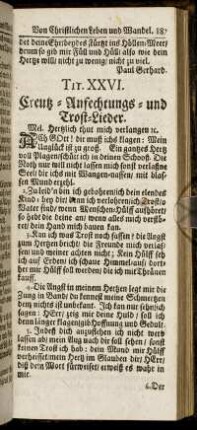 Von Christlichen Leben und Wandel. 187
denn so gib mir Füll und Hüll: also wie dein
Hertz will: nicht zu wenig: nicht zu viel.
Paul Gerhard.
TIT. XXVI.
Creutz- Anfechtungs- und
Trost-Lieder.
Mel. Hertzlich thut mich verlangen ꝛc.
ACh GOtt! dir muß ichs klagen: Mein
Unglück ist zu groß. Ein gantzes Hertz
voll Plagen schütt ich in deinen Schooß. Die
Noth will nicht lassen mich sonst verlaßne
Seel die ichs mit Wangen-nassen/ mit blas-
sen Mund erzehl.
2. Zu dir
Kind/ hey dir/ dem ich verlohrnlich
feist sind/ wenn Menschen-Hülf aufhöret/
so hebt die deine an/ wenn alles mich versto-
ret/ dein Hand mich bauen kan.
3. Kan ich was Trost noch fassen/ die Angst
zum Hertzen bricht/ die Freunde mich verlas-
sen/ und weiter achten nicht; Kein Hülf seh
ich auf Erden/ ich schaue Himmelauf/ dort-
her mir Hülff soll werden/ die ich mit Thränen
kauff.
4. Die Angst in meinem Hertzen legt mir die
Zung in Band/ du kennest meine Schmertzen
dir nichts ist unbekant. Ich kan nur sehnlich
sagen: HErr/ zeig mir deine Huld/ soll ich
denn länger klagen/ gib Hoffnung und Gedult.
5. Indeß dich anzuflehen nicht werd
lassen ab; mein Aug nach dir soll sehen/ sonst
keinen Trost ich hab: dein Mund mir Hülff
verheisset/ mein Hertz im Glauden dir/ HErr/
diß dein Wort fürweiset/ erweiß es wahr
in mir.
6. Der